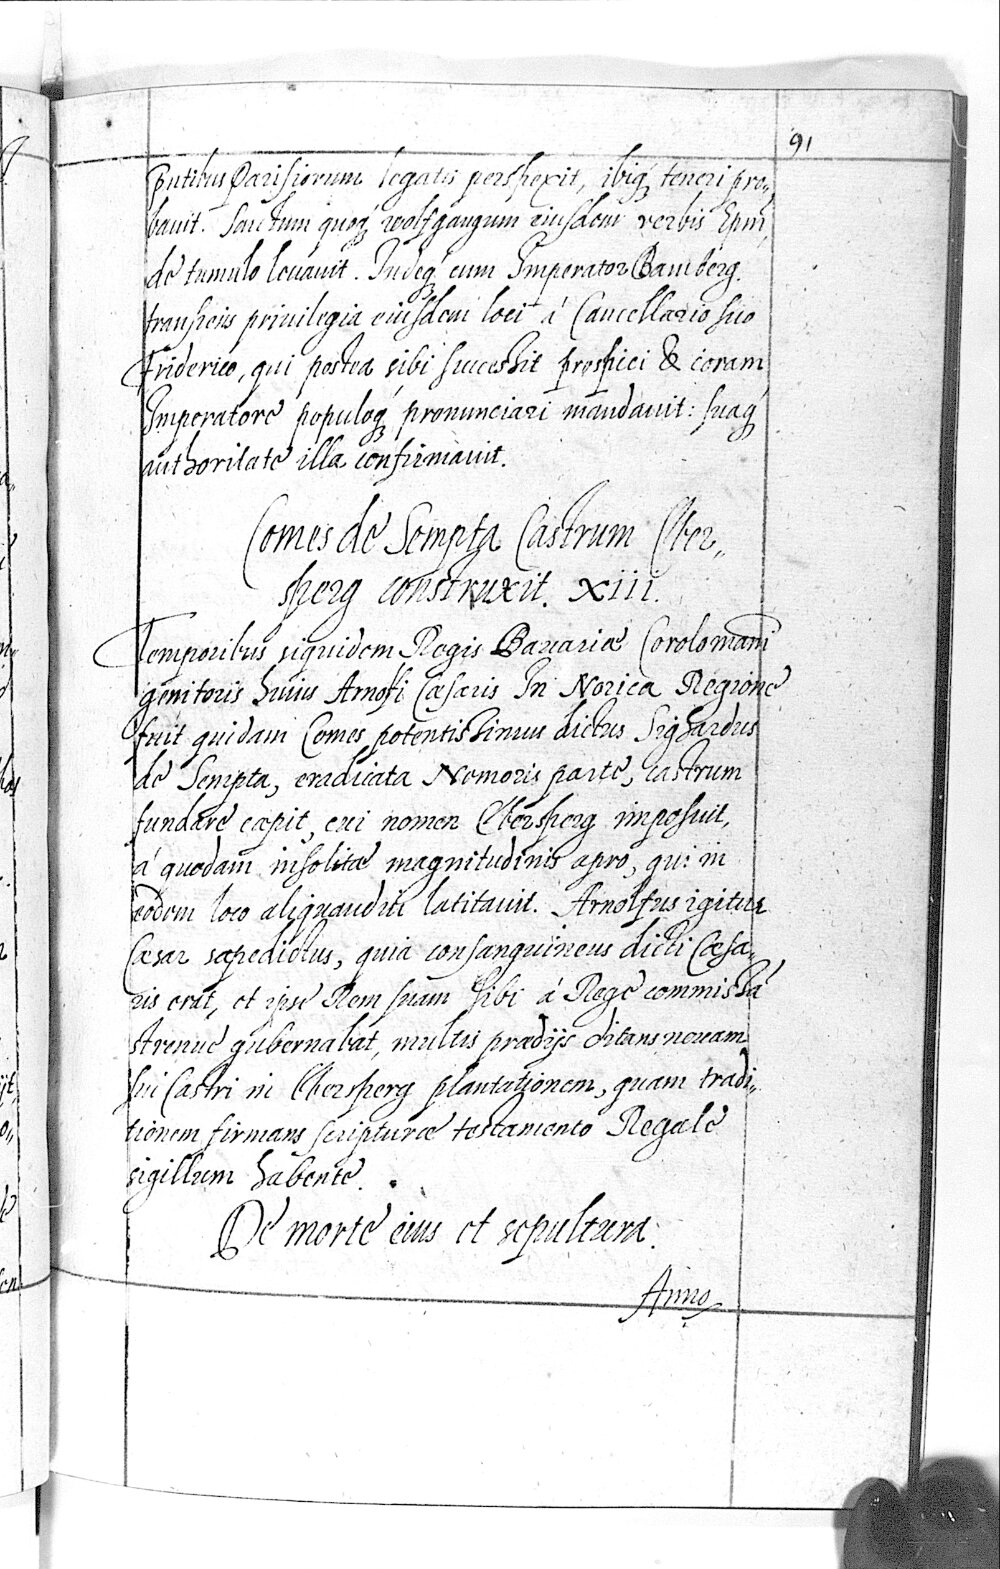 91
putibus Parisiorum legatis perspexit, ibiq́ʒ teneri pro„
bauit. Sanctum quoq́ʒ wolfgangum eiusdem verbis Epm̄
de tumulo leuauit. Indeq́ʒ cum Imperator Bamberg.
transiens priuilegia eiusdem loci á Cancellario suo
Friderico, qui postea sibi successit prospici & coram
Imperatore populoq́ʒ pronunciari mandauit: suaq́ʒ
authoritate illa confirmauit.
Comes de Sempta Castrum Eber„
sperg construxit. XIII.
Temporibus siquidem Regis Bauariæ Corolomani
genitoris huius Arnolfi Cæsaris In Norica Regione
fuit quidam Comes potentissimus dictus Sighardus
de Sempta, eradicata Nemoris parte, castrum
fundare cæpit, cui nomen Ebersperg imposuit,
á quodam insolitæ magnitudinis apro, qui in
eodem loco aliquandiu latitauit. Arnolfus igitur
Cæsar sæpedictus, quia consanguineus dicti Cæsa„
ris erat, et ipse Rem suam sibi á Rege commissā
strenué gubernabat, multis prædijs ditans nouam
sui Castri in Ebersperg plantationem, quam tradi„
tionem firmans scripturæ testamento Regale
sigillum habente.
De morte eius et sepultura.
Anno